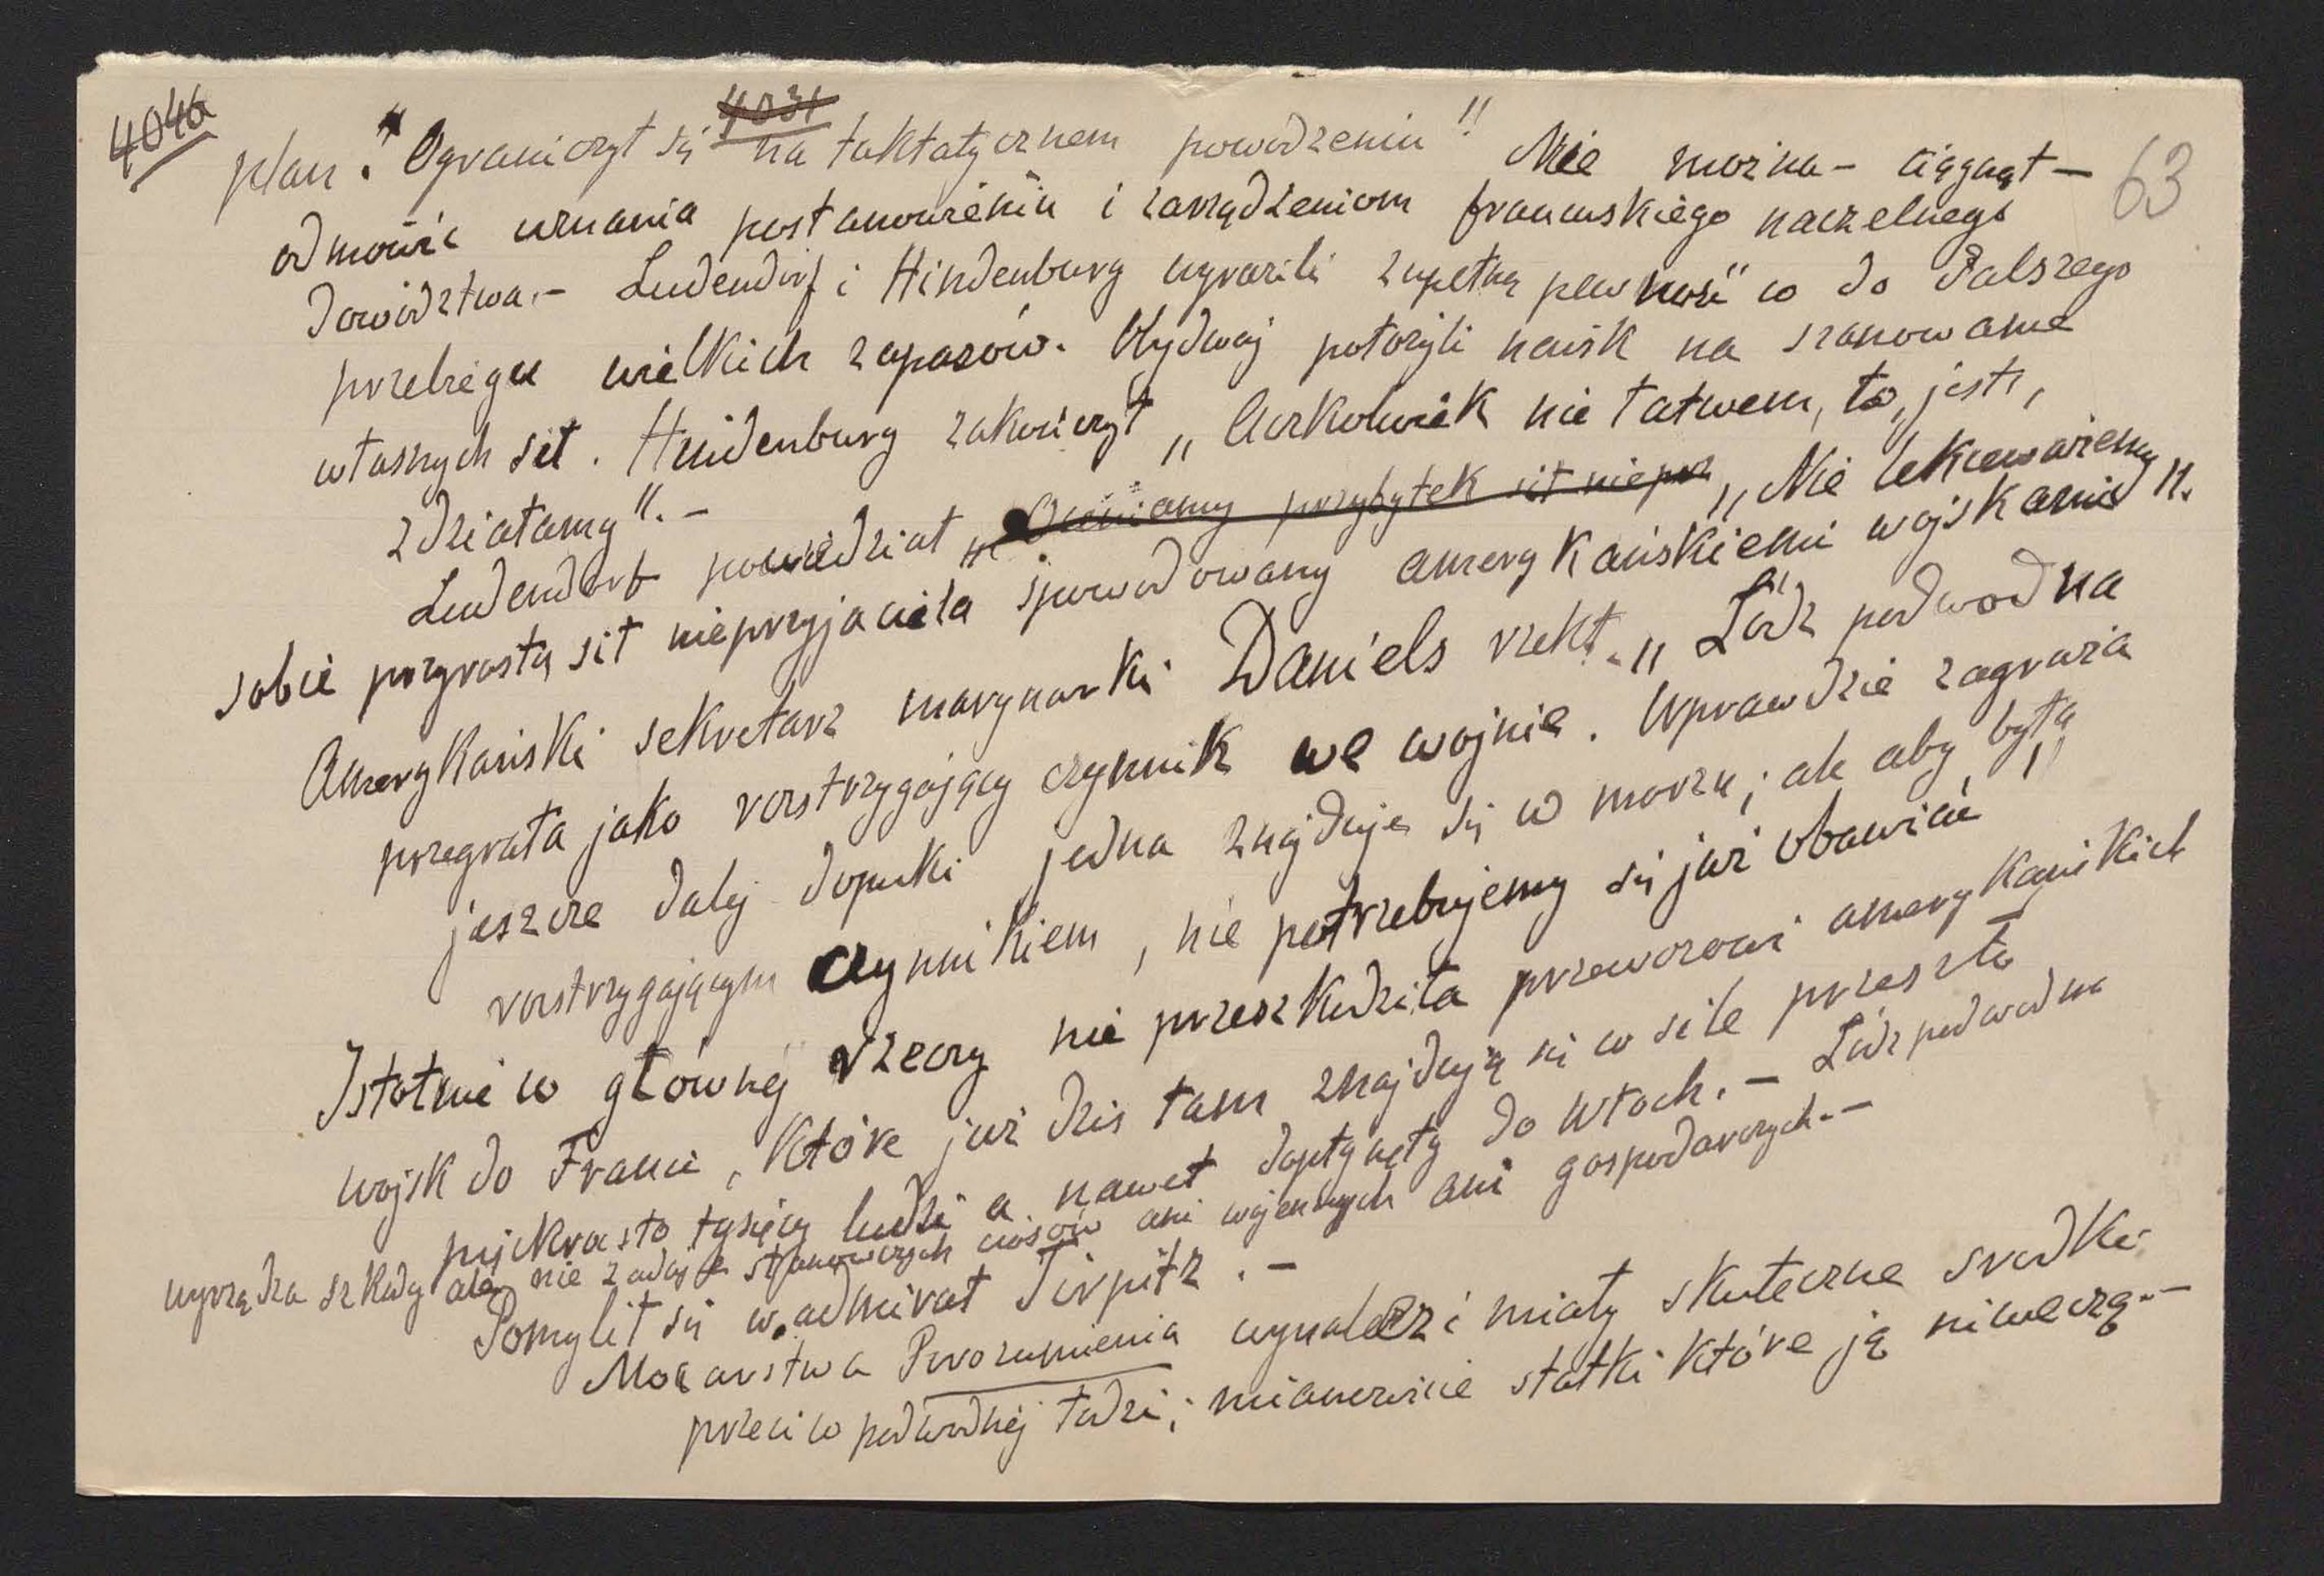 404a
4031
63
plan." Ograniczył się na taktatycznem powodzeniu" Nie można - ciągnął -
odmówić uznania postanowieniu i zarządzeniom francuskiego naczelnego
dowództwa.- Ludendorf i Hindenburg wyrazili zupełną pewność" co do dalszego
przebiegu wielkich zapasów. Wydwaj położyli nacisk na szanowanie
własnych sił. Hindenburg zakończył „Aczkolwiek nie łatwem, to, jest,
zdziałamy".-
Ludendorf powiedział „ Oceniamy przybytek sił niepr „Nie lekceważemy
sobie przyrostu sił nieprzyjaciela spowodowany amerykańskiemi wojskami".
Amerykański sekretarz marynarki Daniels rzekł „Łódź podwodna
przegrała jako rozstrzygający czynnik we wojnie. Wprawdzie zagraża
jeszcze dalej dopuki jedna znajduje się w morzu; ale aby była
rozstrzygającym czynnikiem, nie potrzebujemy się już obawiać"
Istotnie w głównej rzeczy nie przeszkodziła przewozowi amerykańskich
wojsk do Franci, które już dzis tam znajdują się w sile przeszło
pięckrosto tysięcy ludzi a nawet dopłynęły do Włoch.- Łódź podwodna
wyrządza szkody ale nie zadaje stanowczych ciosów ani wojennych ani gospodarczych.-
Pomylił się w. admirał Tirpitz.-
Mocarstwa Porozumienia wynalezi miały skuteczne srodki
przeciw podwodnej łodzi; mianowicie statki które ją niweczą.-